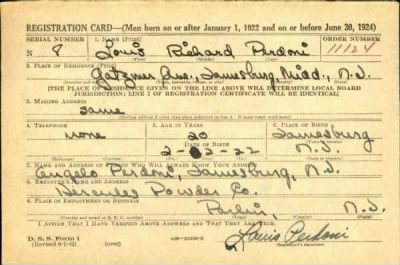 REGISTRATION CARD—(Men born on or after January 1, 1922 and on or before June 30, 1924)
SERIAL NUMBER 1. NAME (Print) ORDER NUMBER
N 8 Louis Richard Perdoni 11124
(First) (Middle) (Last)
2. PLACE OF RESIDENCE (Print)
Gatzmer Ave., Jamesburg, Midd., N.J.
[THE PLACE OF RESIDENCE GIVEN ON THE LINE ABOVE WILL DETERMINE LOCAL BOARD
JURISDICTION; LINE 2 OF REGISTRATION CERTIFICATE WILL BE IDENTICAL]
3. MAILING ADDRESS
Same
4. TELEPHONE 5. AGE IN YEARS 6. PLACE OF BIRTH
none 20 Jamesburg
DATE OF BIRTH
22 N.J.
7. NAME AND ADDRESS OF PERSON WHO WILL ALWAYS KNOW YOUR ADDRESS
Angelo Perdoni, Jamesburg, N.J.
8. EMPLOYER'S NAME AND ADDRESS
Hercules Powder Co.
9. PLACE OF EMPLOYMENT OR BUSINESS
Parlin, N.J.
I AFFIRM THAT I HAVE VERIFIED ABOVE ANSWERS AND THAT THEY ARE TRUE.
D. S. S. Form 1
(Revised 6-9-42)
Louis Perdoni